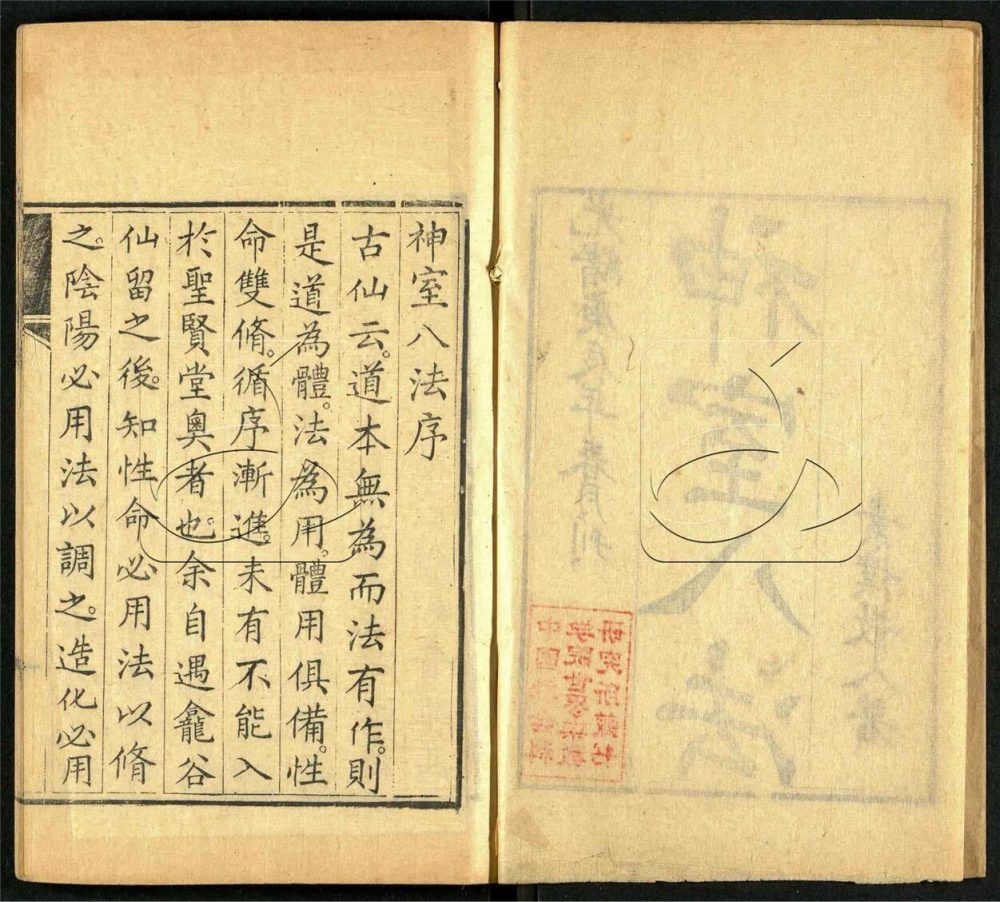 神室八法
素樸散人著
神室八法序
古仙云。道本無為而法有作。則
是道為體。法為用。體用俱備。性
命雙脩。循序漸進。未有不能入
於聖賢堂奧者也。余自遇龕谷
仙留之後。知性命必用法以脩
之。陰陽必用法以調之。造化必用